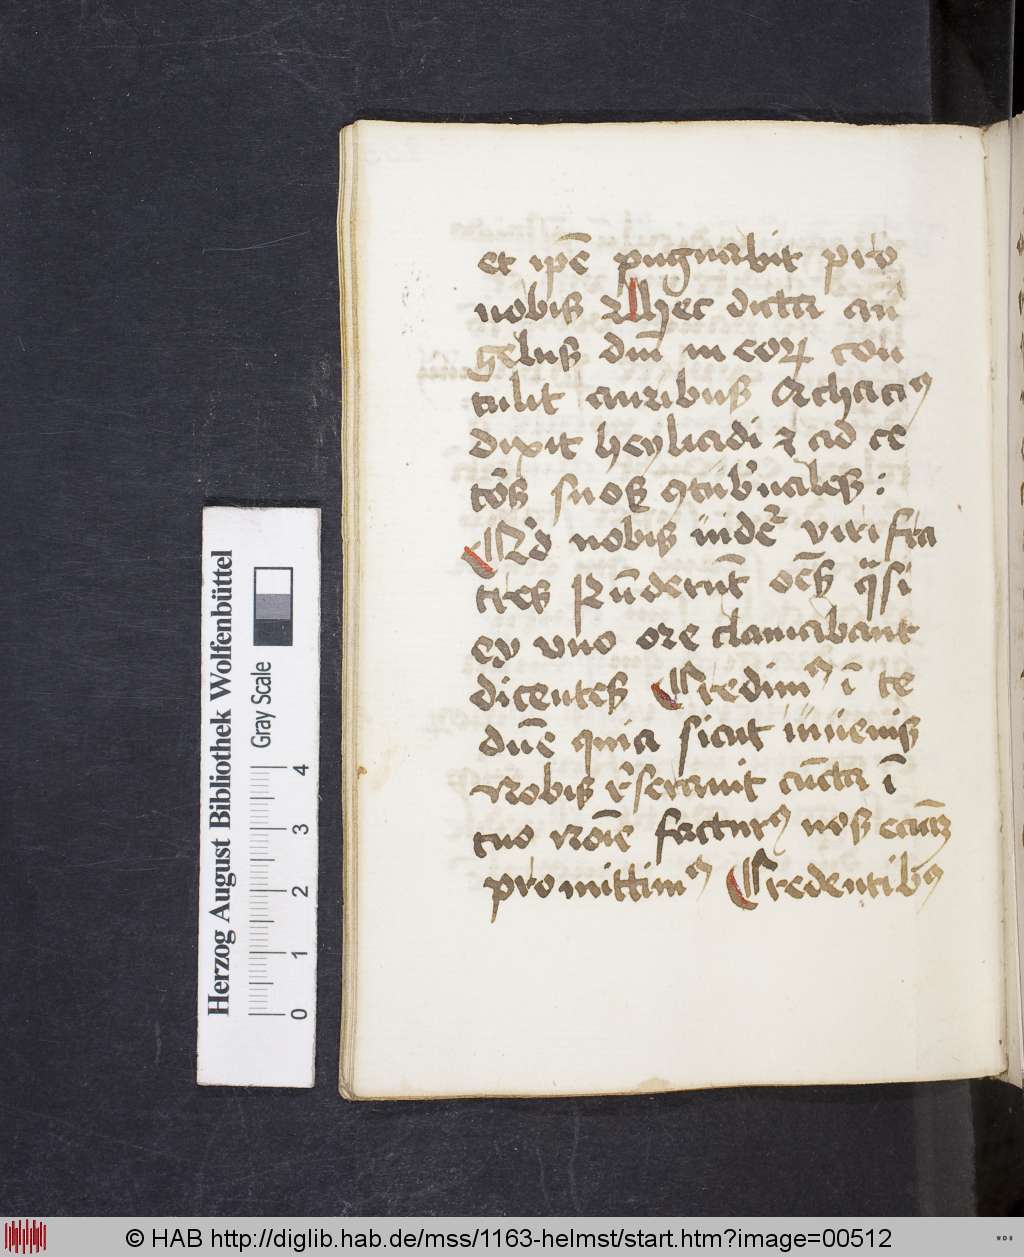 et ip̄e pugnabit pro
nobis hec dicta an
gelus dn̄i in eoꝝ con
tulit auribus Achaciꝯ
dixit heyliadi ⁊ ad ce
tōs suos ꝯtub̄nales :
Qͥd nobis uidet᷑ viri fra
tres Rn̄derūt oēs q̄si
ex uno ore clamabant
dicentes Credimꝯ ī te
dn̄e quia sicut iuuenis
nobis r̄serauit cūcta ī
tuo noīe facturꝯ nos eciaꝫ
promittimꝯ Credentibꝯ
Herzog August Bibliothek Wolfenbüttel
Gray Scale
0 1 2 3 4
© HAB http://diglib.hab.de/mss/1163-helmst/start.htm?image=00512